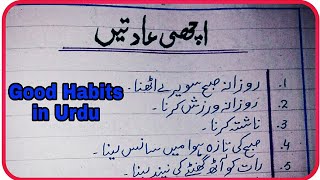 اچھی عادتیں
Good Habits
in Urdu
1. روزانہ صبح سویرے اٹھنا۔
2. روزانہ ورزش کرنا۔
3. ناشتہ کرنا۔
4. صبح کی تازہ ہوا میں سانس لینا۔
5. رات کو آٹھ گھنٹے کی نیند لینا۔